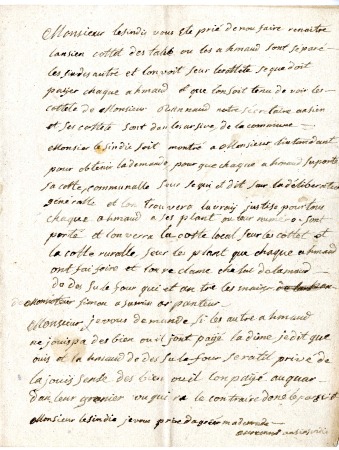 Monsieur le sindis vous ete prié de nou faire renaitre
lansien cottet des talie ou les ahmaud sont séparé
les uns des autre et lon voit seur le cottete se que doit
paiser chaque ahmaud et que lon soit tenu de voir les
cottete de Monsieur notre secretaire ansien
et ses cottete sont dan les arsive de la commune
Monsier le sindic soit montré a Monsieur Lintandant
pour obtenir la demande pour que chaque ahmaud suporte
sa cotte communalle seur se qui est dit sur la déliberation
générale et lon trouvera la vrais justise pour tous
chaque ahmaud a ses plant ou leur numero sont
porté et lon verra la cotte local sur les cottet et
la cotte curalle, seur les plant que chaque ahmaud
ont fai faire et lon re clame chelui de lamaud
de des su le four qui et an tre les mains
de Monsieur simon a sarvin arpanteur
Monsieur, je vous demande si les autre ahmaud
ne jouis pa des bien ou il sont pagé la dime je dit que
ouis et la hmaud de des su le four seratet privé de
la jouisense des bien ou il lon pagé au quar
dan leur grenier ou qui ra le contraire done le
Monsieur le sindic je vous prie dagréer ma demande